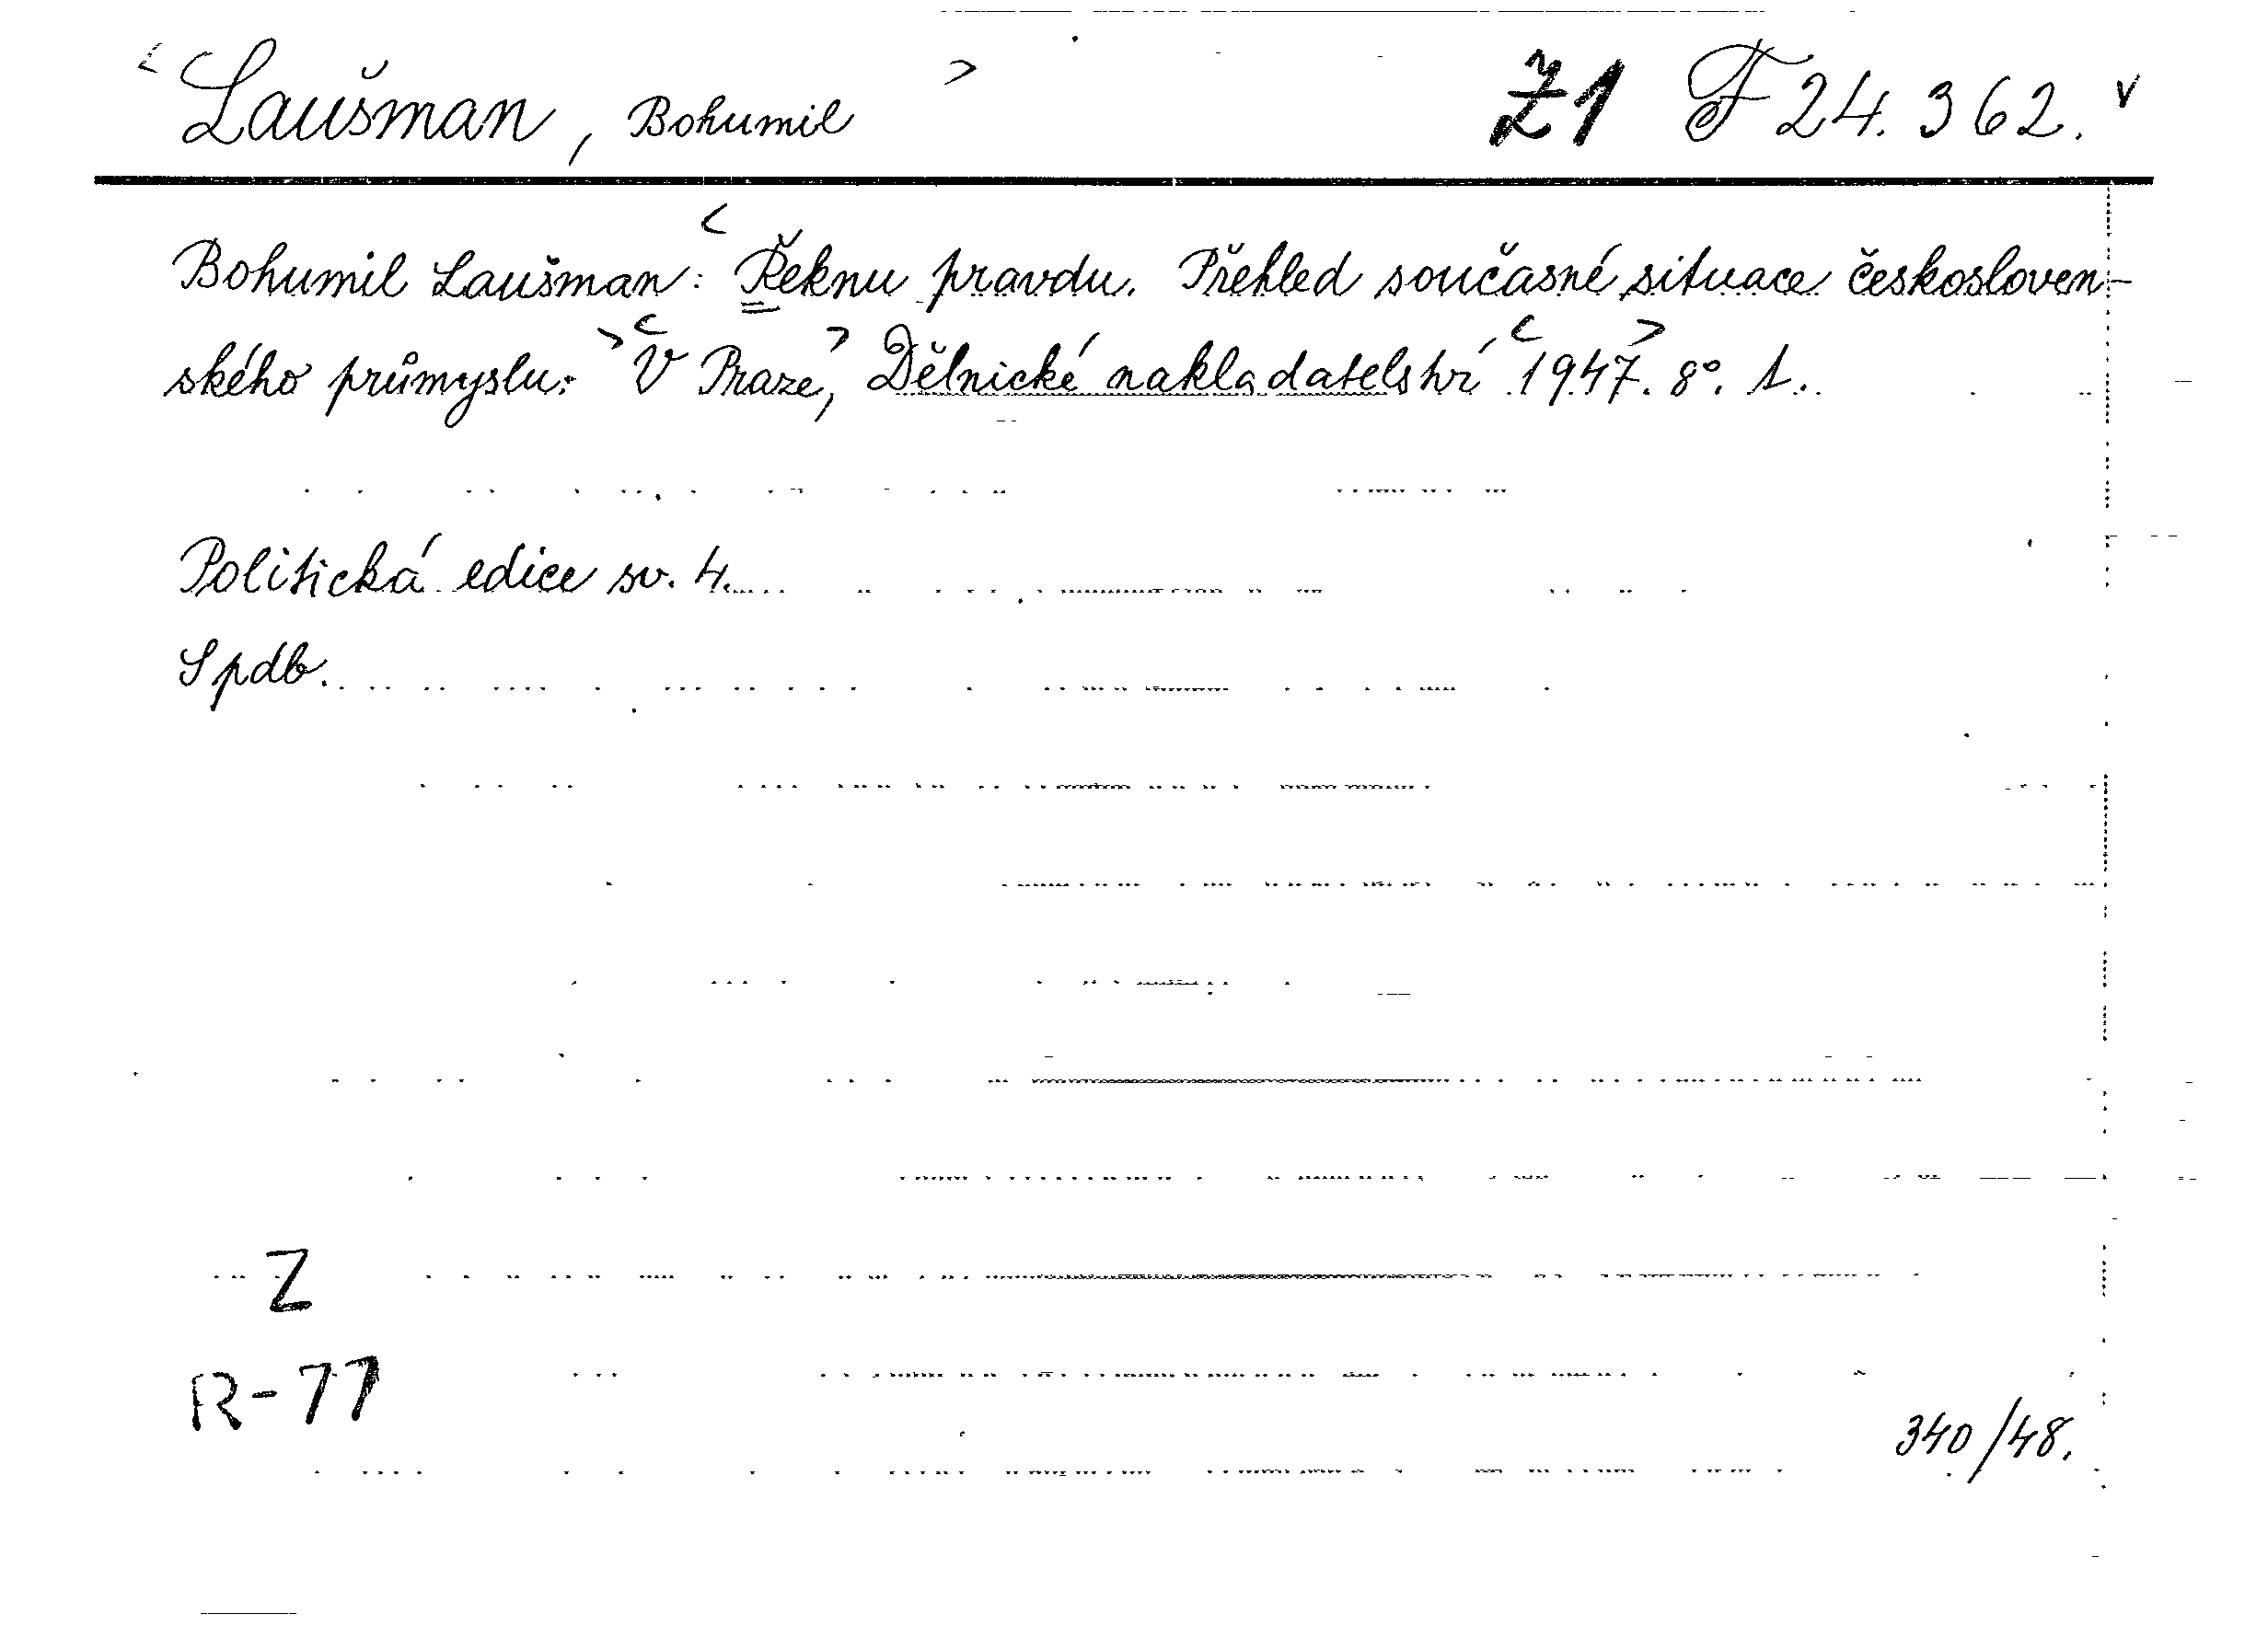 < Laušman, Bohumil > Ž1 F 24.362. v
Bohumil Laušman: < Řeknu pravdu. Přehled současné situace českosloven-
ského průmyslu. > < V Praze, > Dělnické nakladatelství < 1947. > 8°. 1.
Politická edice sv. 4.
Spdb.
Z
R-77
340/48.